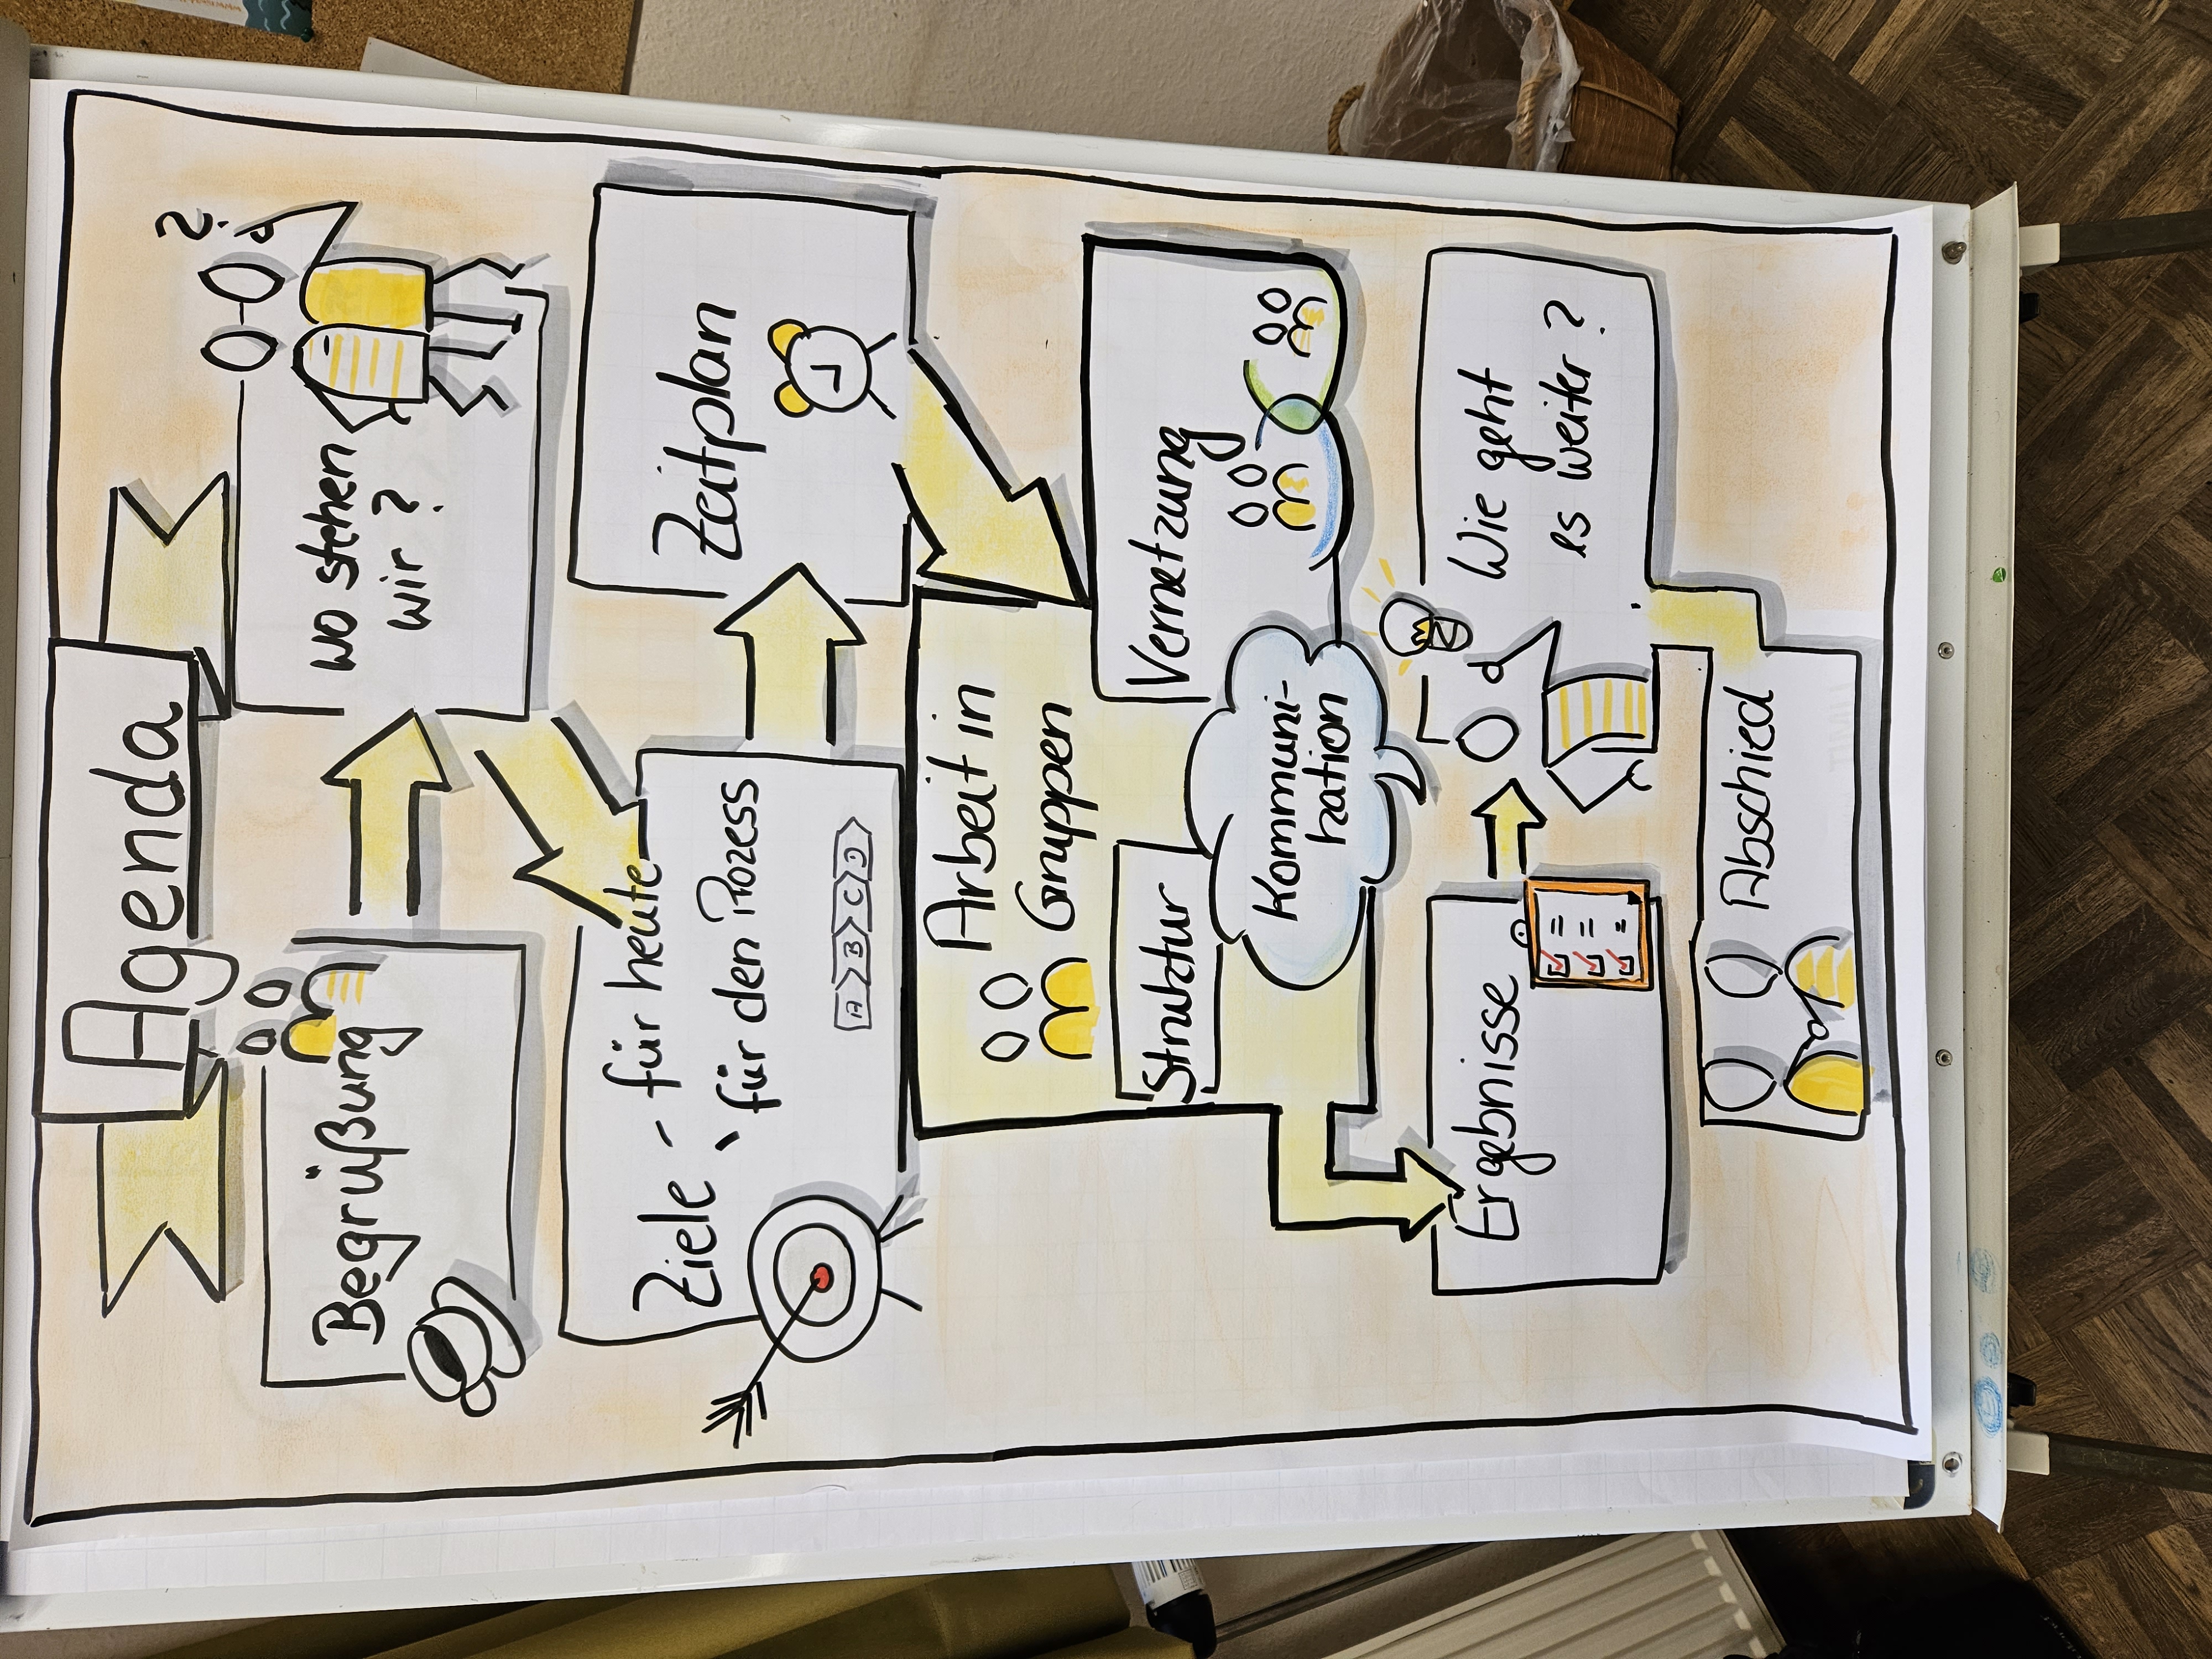 Agenda
Begrüßung
wo stehen
wir?
?
Ziele - für heute
- für den Prozess
A B C D
Zeitplan
Arbeit in
Gruppen
Struktur
Kommuni-
kation
Vernetzung
Ergebnisse
Wie geht
es weiter?
Abschied